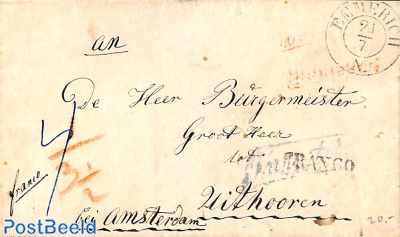 an
EMMERICH
21/7
N.1
De Heer Bürgermeister
Groot Heer
tot
FRANCO
Uithooren
bei Amsterdam
franco
3½
20.-
PostBeeld